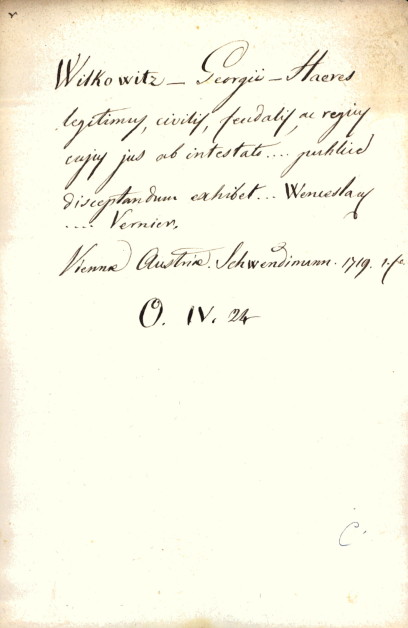 Wilkowitz – Georgii – Haeres
legitimus, civilis, feudalis, ac regius
cujus jus ab intestato .... publice
disceptandum exhibet ... Wenceslaus
.... Vernier.
Viennæ Austriæ. Schwendimann. 1719.
O. IV. 24
C.